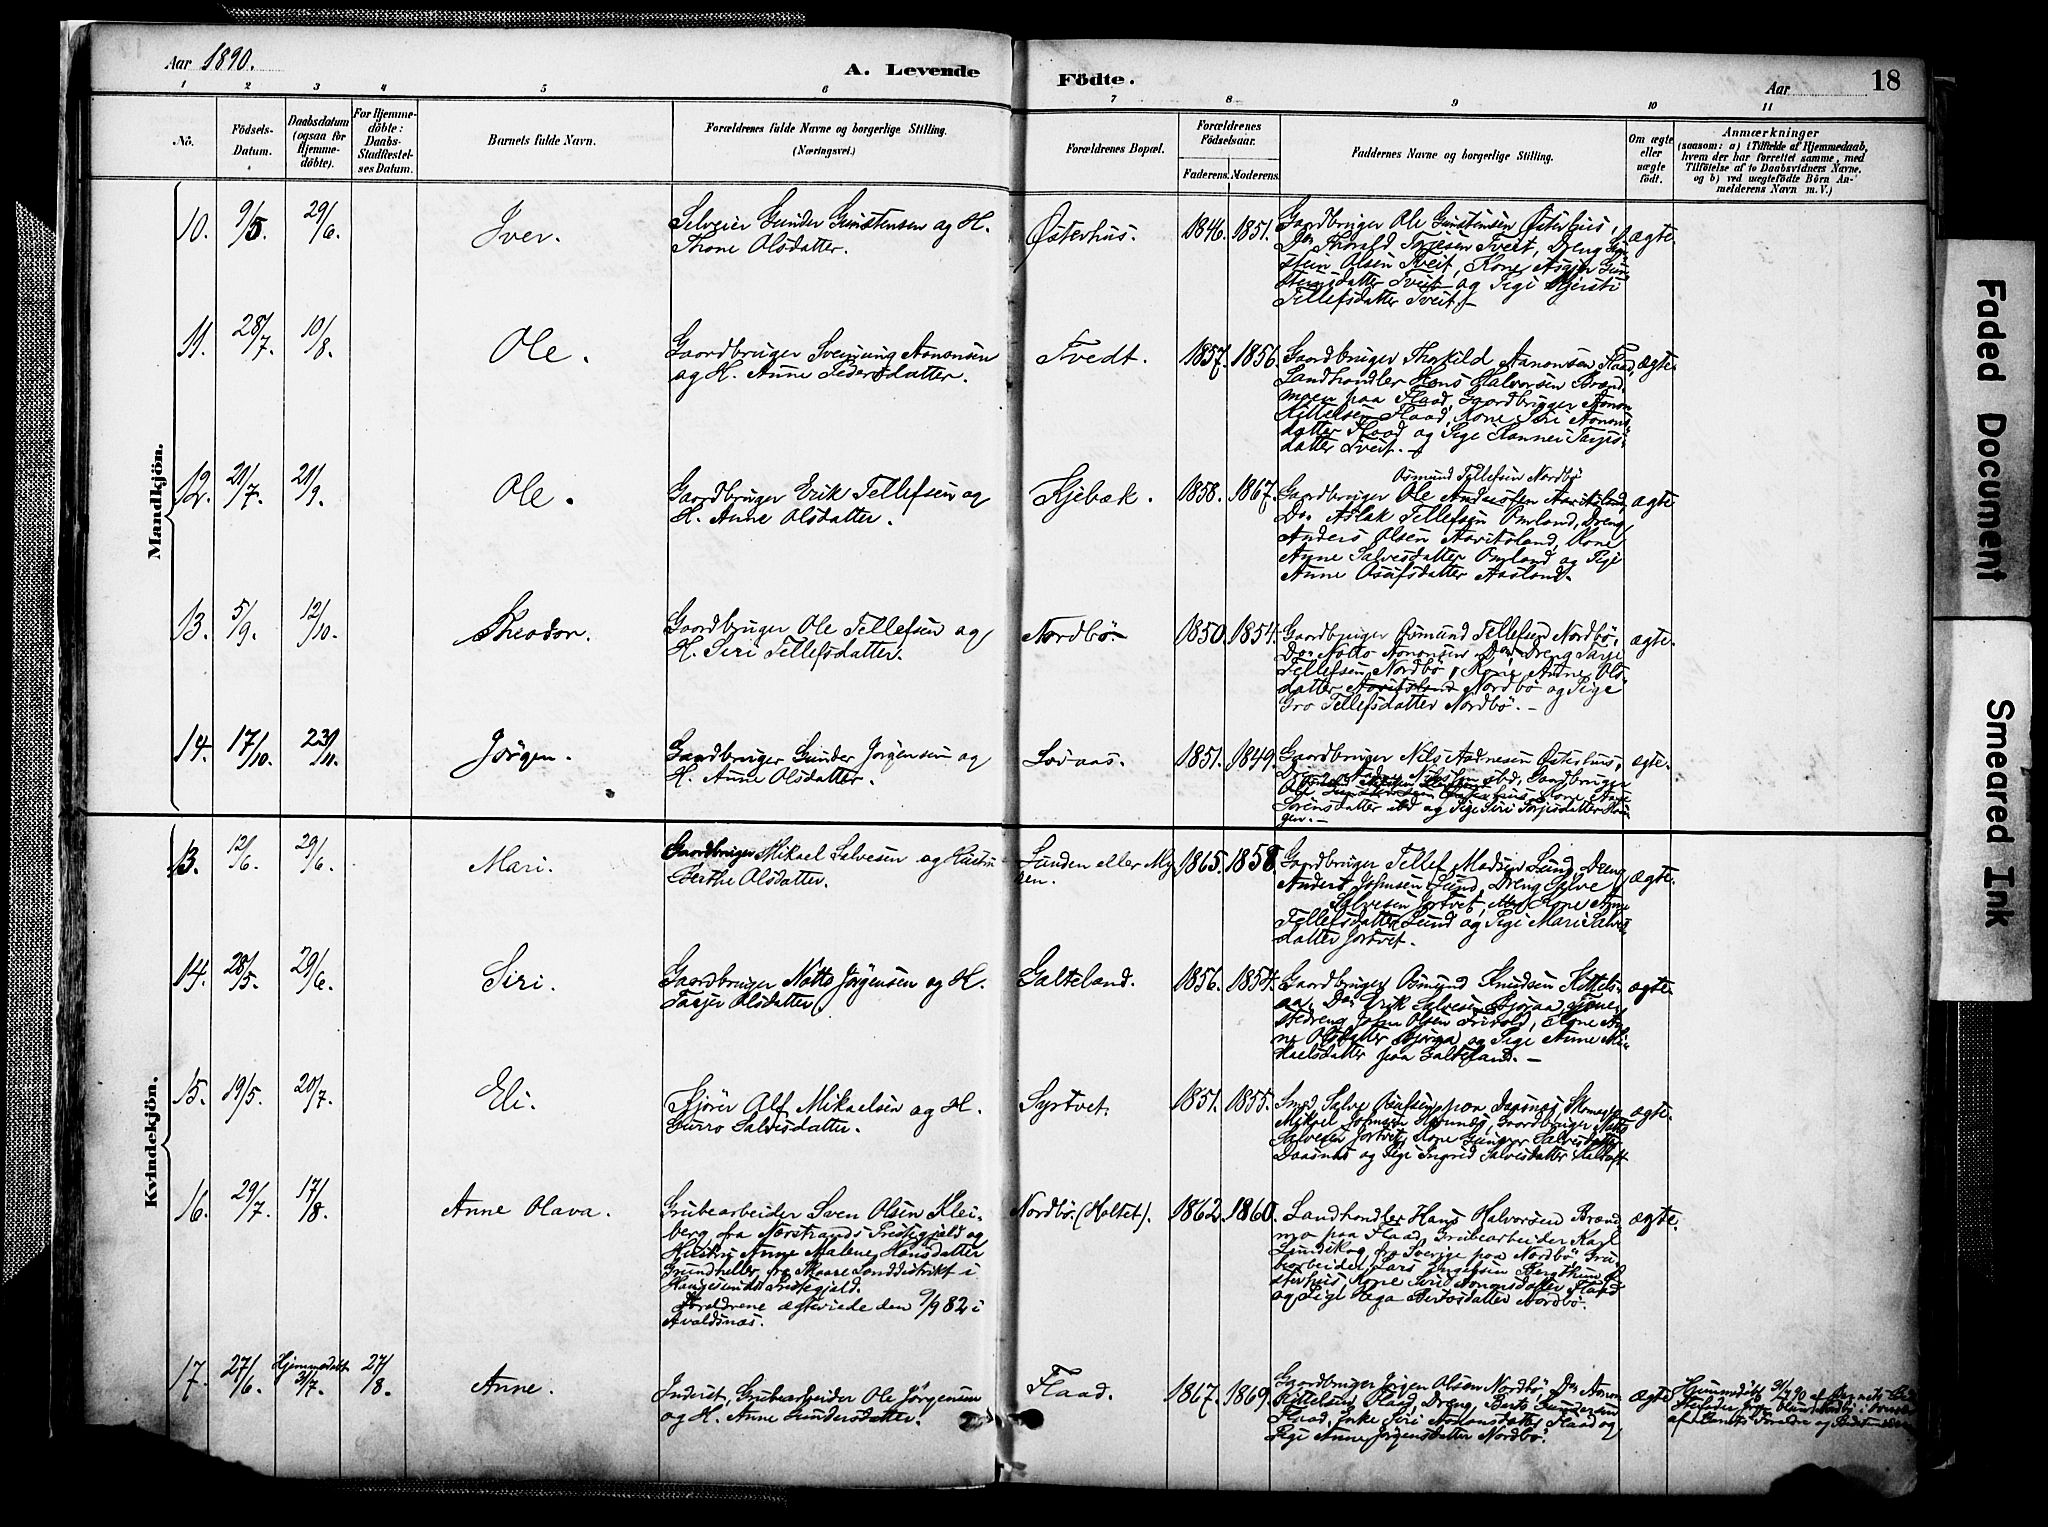 Aar 1890.
A. Levende Födte.
Aar 18
1 2 3 4 5 6 7 8 9 10 11
No.
Födsels-Datum.
Daabsdatum (ogsaa for Hjemme-döbte).
For Hjemme-döbte: Daabs-Stadfæstel-ses Datum.
Barnets fulde Navn.
Forældrenes fulde Navne og borgerlige Stilling. (Næringsvei.)
Forældrenes Bopæl.
Forældrenes Födselsaar.
Faderens. Moderens.
Faddernes Navne og borgerlige Stilling.
Om ægte eller uægte födt.
Anmærkninger
(saasom: a) i Tilfælde af Hjemmedaab,
hvem der har forrettet samme, med
Tilföielse af to Daabsvidners Navne.
og b) ved uægtefödte Börn An-
melderens Navn m. V.)
Mandkjön.
10. 9/5. 29/6. Iver.
Selveier Gunder Gunstensen og H.
Thone Olsdatter.
Østerhus. 1846. 1851.
Gaardbruger Ole Gunstensen Østerhus,
Do Thorald Terjesen Tveit, Dreng Gun-
stein Olsen Tveit, Kone Asgjer Gun-
steinsdatter Tveit og Pige Kjersti
Tellefsdatter Tveit.
ægte.
11. 28/7. 10/8. Ole.
Gaardbruger Sveinung Aanonsen
og H. Anne Pedersdatter.
Tvedt. 1857. 1856.
Gaardbruger Thorkild Aanonsen Flaad,
Landhandler Hans Halvorsen Brænd-
moen paa Flaad, Gaardbruger Aanon
Kittelsen Flaad, Kone Siri Aanons-
datter Flaad og Pige Tarjes-
datter Tveit.
ægte.
12. 21/7. 21/9. Ole.
Gaardbruger Erik Tellefsen og
H. Anne Olsdatter.
Kjebæk. 1858. 1867.
Osmund Tellefsen Nordbø
Gaardbruger Ole Andersen Aavitsland,
Do. Aslak Tellefsen Omland, Dreng
Anders Olsen Aavitsland, Kone
Anne Salvesdatter Omland og Pige
Anne Osufsdatter Aasland.
ægte
13. 5/9. 12/10. Theodor.
Gaardbruger Ole Tellefsen og
H. Siri Tellefsdatter.
Nordbø 1850. 1854.
Gaardbruger Osmund Tellefsen Nordbø,
Do. Notto Aanonsen Do, Dreng Tarje
Tellefsen Nordbø, Kone Anne Ols-
datter Aavitsland Nordbø og Pige
Gro Tellefsdatter Nordbø.
ægte.
14. 17/10. 23/11. Jørgen.
Gaardbruger Gunder Jørgensen og
H. Anne Olsdatter.
Løvaas. 1851. 1849.
Gaardbruger Nils Aadnesen Østerhus,
Dreng Nilssen ibd, Gaardbruger
Ole Gunstensen Østerhus, Kone Anne
Sørensdatter ibd og Pige Siri Torjesdatter Hau-
gen.
ægte.
Kvindekjön.
13. 12/6. 29/6. Mari.
Gaardbruger Mikael Salvesen og Hustru
Berthe Olsdatter.
Lunden eller My-
ren.
1865. 1858.
Gaardbruger Tellef Madsen Lund, Dreng
Anders Johnsen Lund, Dreng Salve
Salvesen Jortvet, Kone Anne
Tellefsdatter Lund og Pige Mari Salves-
datter Jortvet.
ægte.
14. 28/5. 29/6. Siri.
Gaardbruger Notto Jörgensen og H.
Tarjer Olsdatter.
Galteland. 1856. 1854.
Gaardbruger Osmund Knudsen Kittels-
aa, Do Erik Salvesen Bjoraa, Tjene-
stedreng John Olsen Frivold, Kone An-
ne Olsdatter Bjoraa og Pige Anne Mi-
kaelsdatter paa Galteland.
ægte.
15. 19/5. 20/7. Eli.
Kjörer Olf Mikaelsen og H.
Gurro Salvesdatter.
Syrtvet. 1851. 1855.
Smed Salve paa Daasnes, Skomager
Mikael Johnsen Haanes, Gaardbruger Notto
Salvesen Jortvet, Kone Gunvor Salvesdatter
Daasnes og Pige Ingrid Salvesdatter
ægte.
16. 29/7. 17/8. Anne Olava.
Grubearbeider Sven Olsen Klei-
berg fra Nærstrands Præstegjeld og
Hustru Anne Malene Hansdatter
Grundheller fra Skaare Landdistrikt i
Haugesunds Præstegjeld.
Forældrene ægteviede den 9/9 82 i
Avaldsnæs.
Nordbø. (Holtet). 1862. 1860.
Landhandler Hans Halvorsen Brænd-
mo paa Flaad, Grubearbeider Karl
Lundskog fra Sverige paa Nordbø, Gru-
bearbeider Lars Ingelsen
Kone Siri Aanonsdatter Flaad
og Pige Berthesdatter Nordbø.
ægte.
17. 27/6. Hjemmedøbt 31/7. 27/8. Anne.
Inderst, Grubearbeider Ole Jørgensen
og H. Anne Gundersdatter.
Flaad. 1867. 1869.
Gaardbruger Jörgen Olsen Nordbø, Do Aanon
Kittelsen Flaad, Dreng Bent Gundersen
Flaad, Enke Siri Aanonsdatter Flaad og
Pige Anne Jørgensdatter Nordbø.
ægte
Hjemmedøbt 31/7 90 af Barnets
Jørgen Olsen Nordbø i
af Barnets Forældre og
Faded Document
Smeared Ink